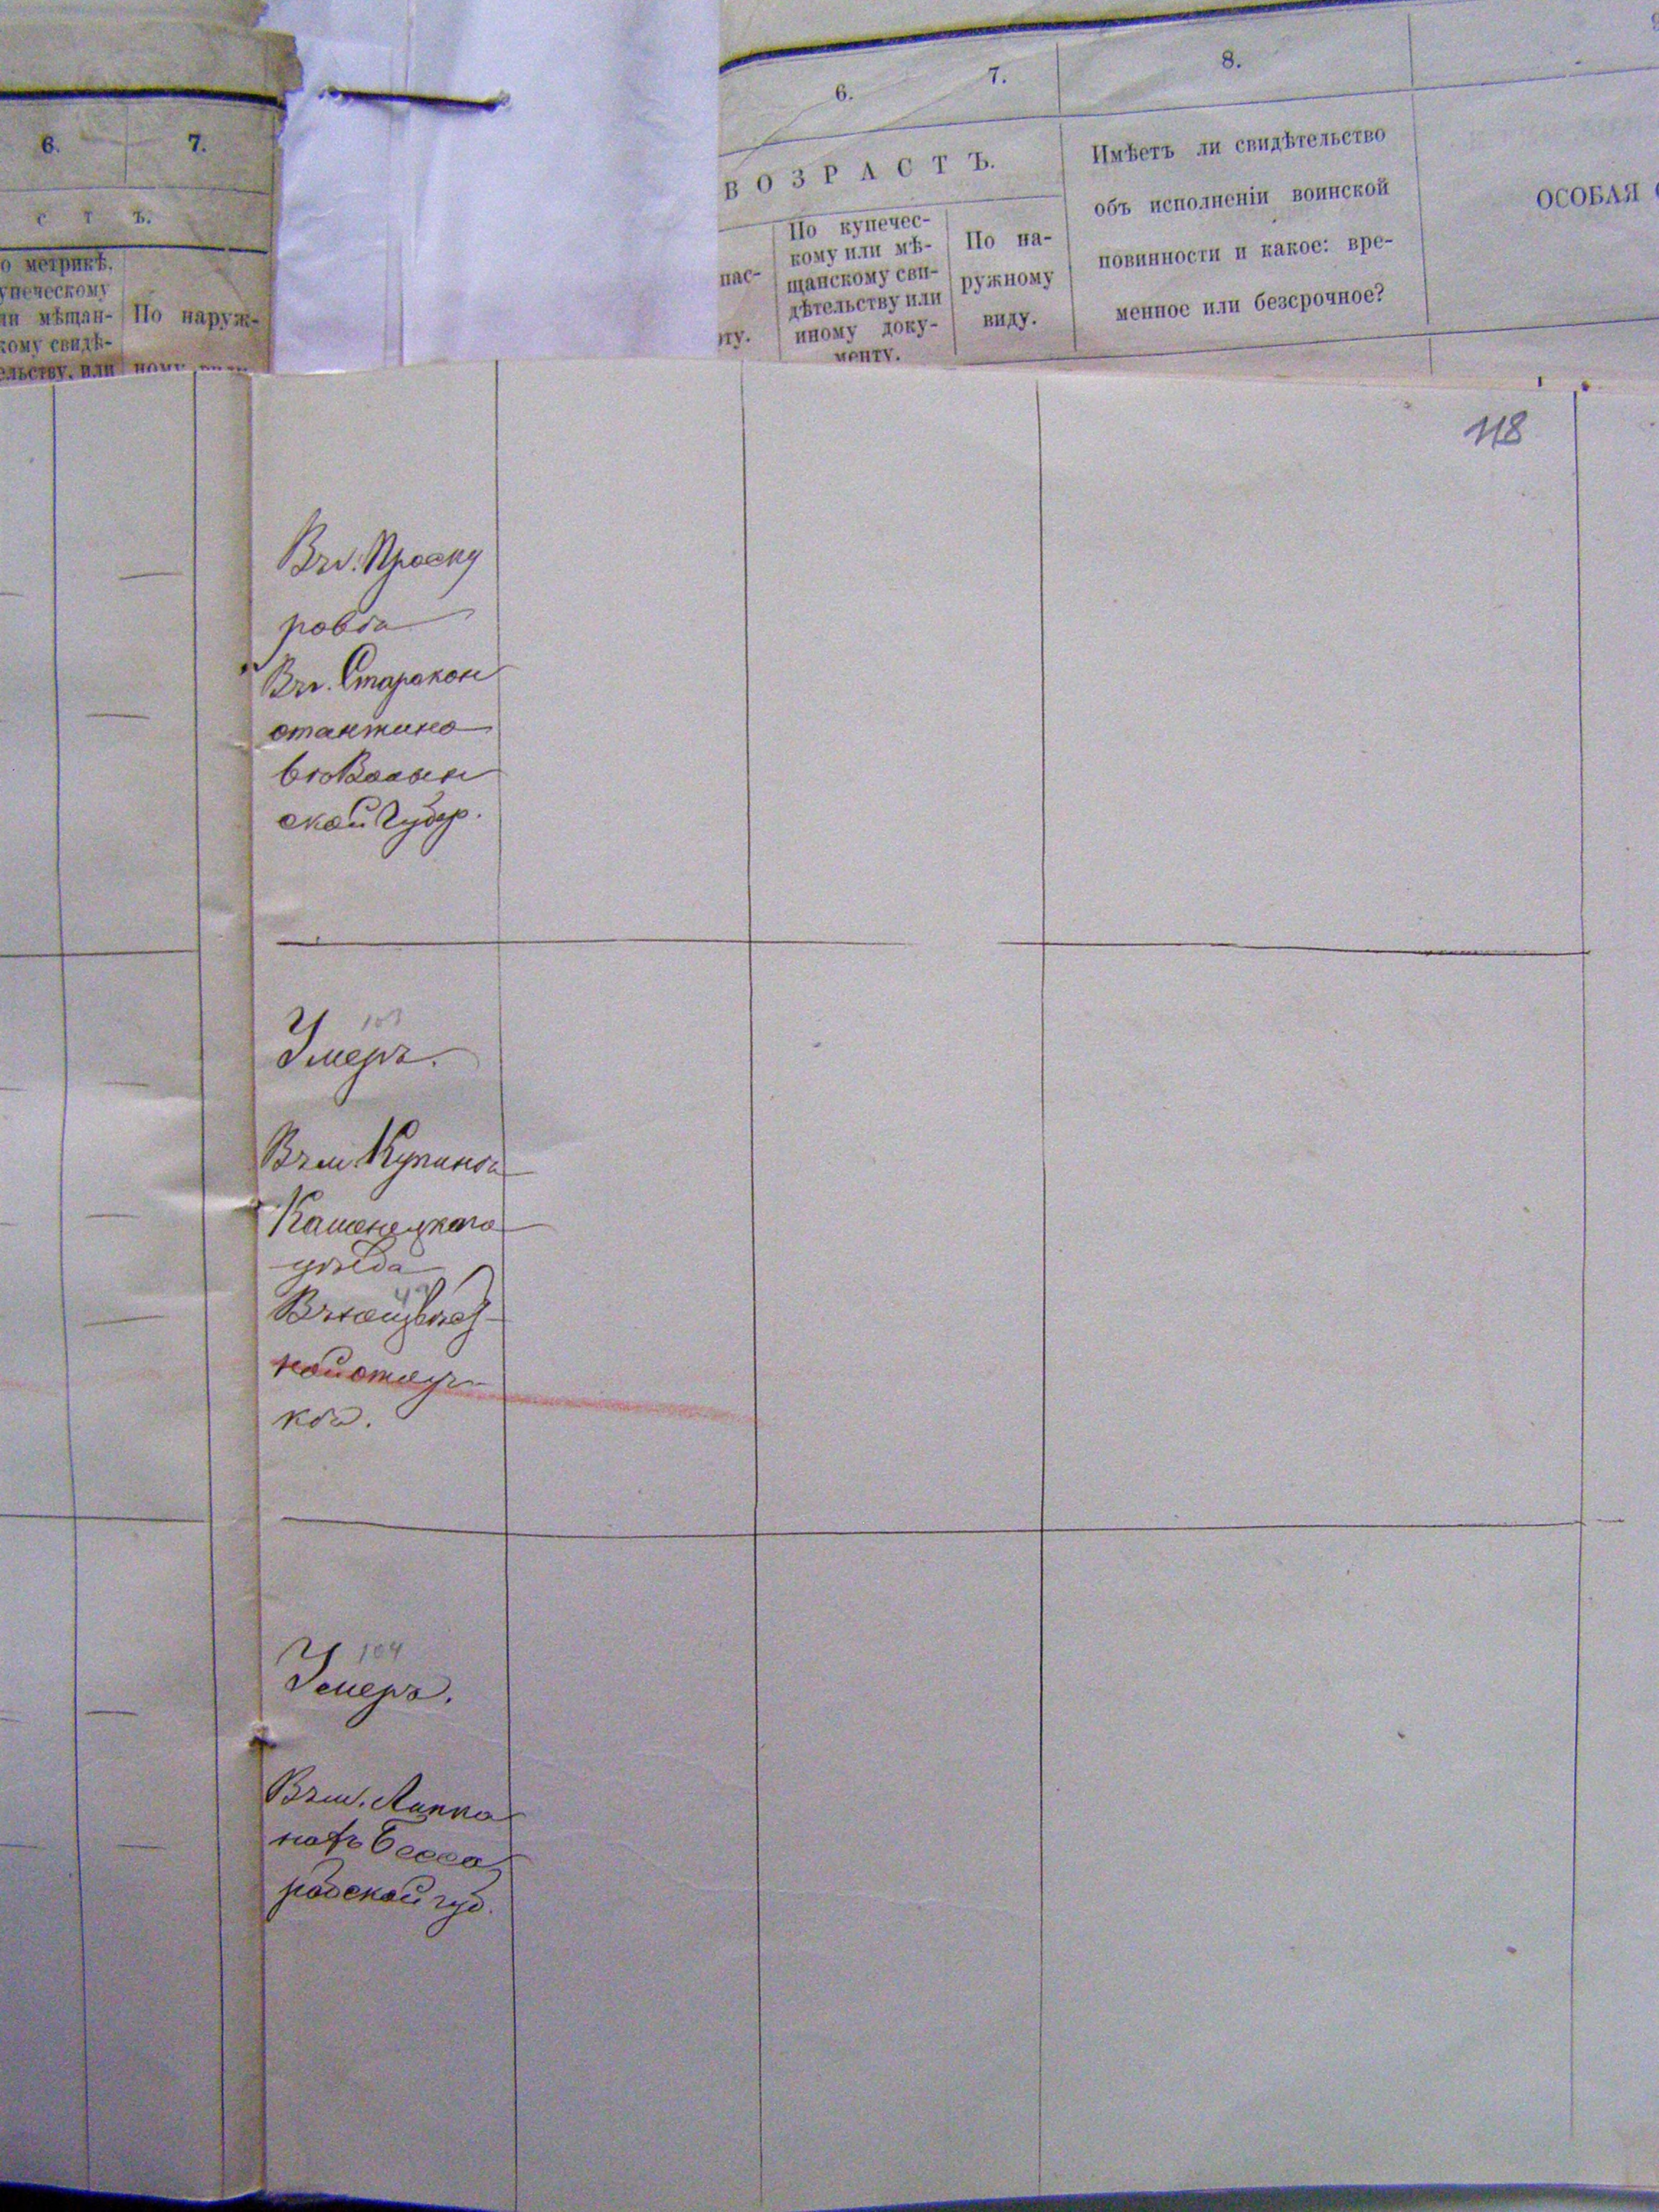 6. 7.
С Т Ъ.
о метрикѣ,
упеческому
ли мѣщан-
кому свидѣ-
ельству, или
По наруж-
ному виду
6. 7. 8.
ВОЗРАСТЪ.
пас-
рту.
По купечес-
кому или мѣ-
щанскому сви-
дѣтельству или
иному доку-
менту.
По на-
ружному
виду.
Имѣетъ ли свидѣтельство
объ исполненіи воинской
повинности и какое: вре-
менное или безсрочное?
ОСОБАЯ
118
Въ г. Проску
ровѣ
Въ г. Старокон
стантино
вѣ Волын
ской Губер.
103
Умеръ.
Въ м. Купинѣ
Каменецкаго
уѣзда
Въ неизвѣст
ной отлуч
кѣ.
104
Умеръ.
Въ м. Липка
нахъ Бесса
рабской губ.